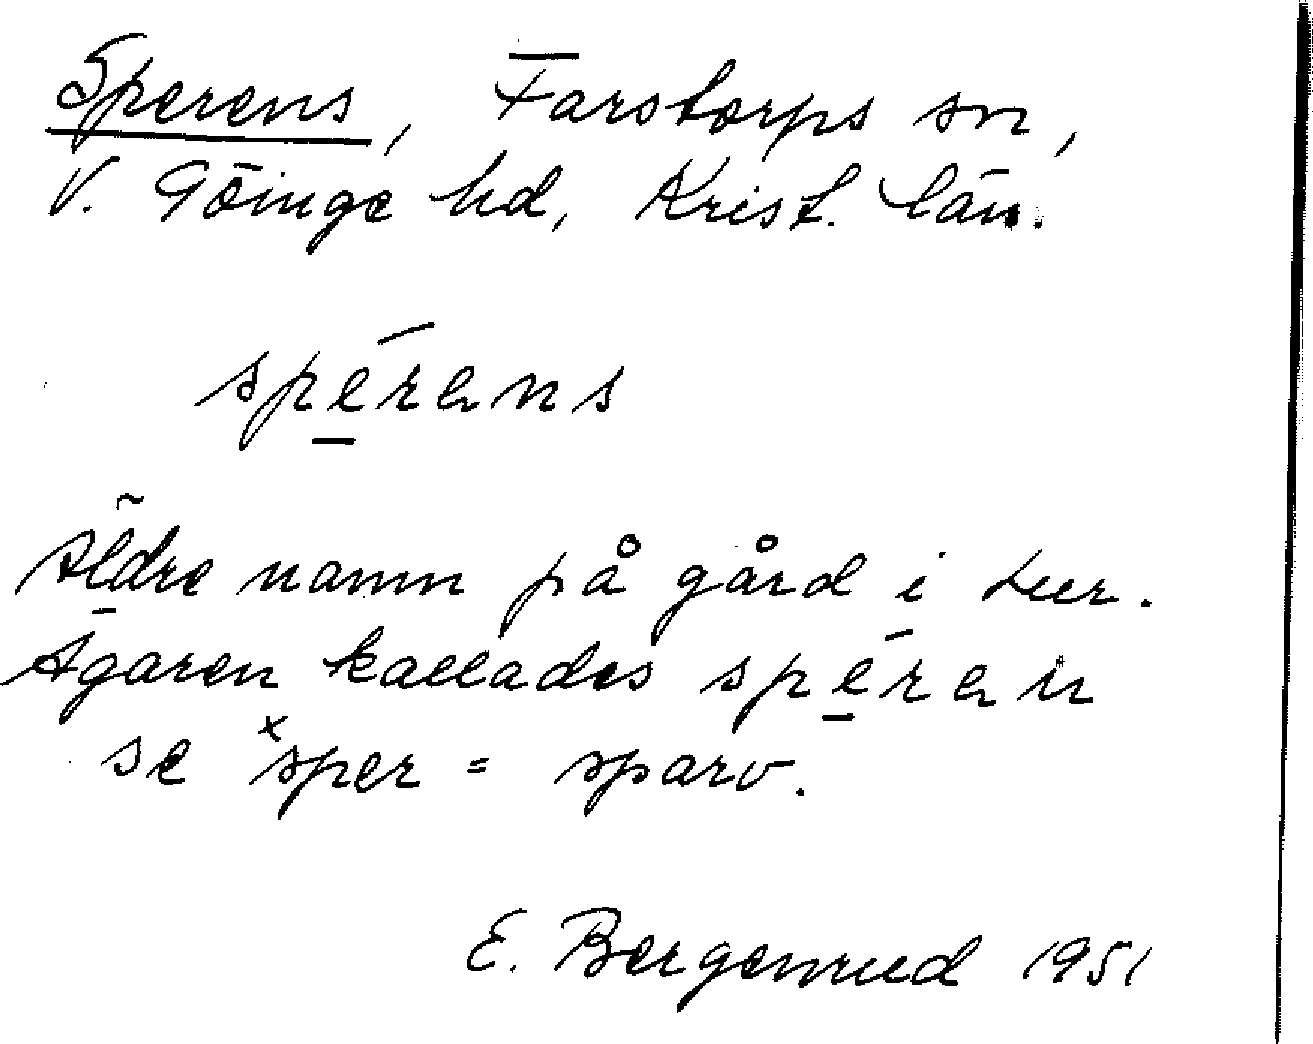 Sperens, Farstorps sn,
V. Göinge hd, Krist. län.
spérens
Äldre namn på gård i Lur.
Ägaren kallades spéren
se ˣsper = sparv.
E. Bergenrud 1951